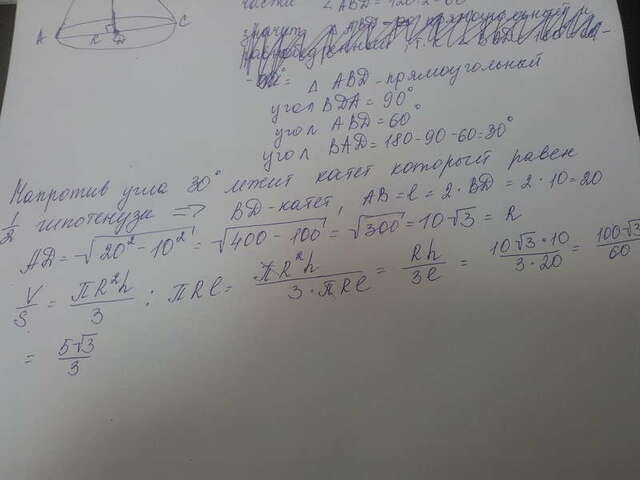 части ∠ABD=120:2=60
A
R
D
C
значит
-90°= △ ABD-прямоугольный
угол BDA = 90°
угол ABD = 60°
угол BAD = 180-90-60=30°
Напротив угла 30° лежит катет который равен
1/2 гипотенузы => BD-катет, AB = l = 2·BD = 2·10=20
AD = √20²-10² = √400-100 = √300 = 10√3 = R
V/S = πR²h/3 : πRl = πR²h/3·πRl = Rh/3l = 10√3·10/3·20 = 100√3/60
= 5√3/3